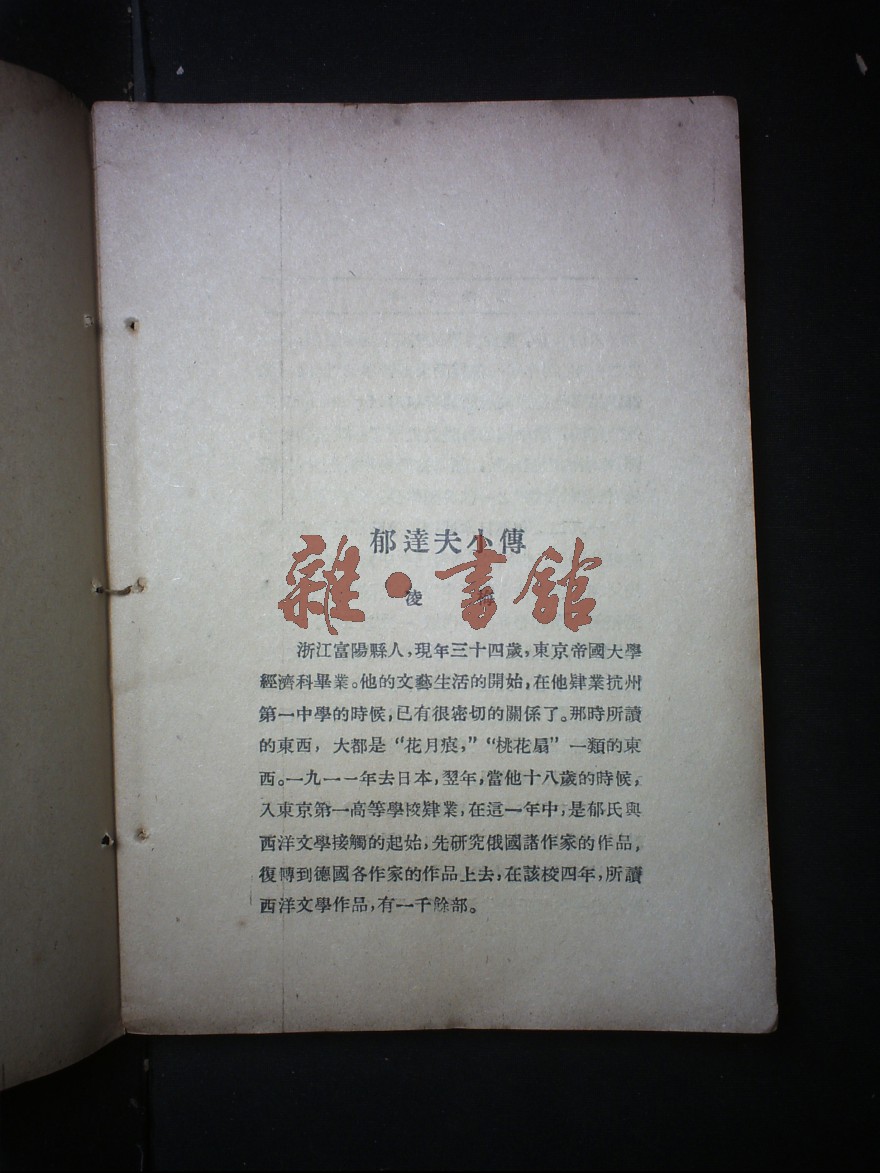 郁達夫小傳
雜·書舘
凌
浙江富陽縣人，現年三十四歲，東京帝國大學
經濟科畢業。他的文藝生活的開始，在他肄業杭州
第一中學的時候，已有很密切的關係了。那時所讀
的東西，大都是“花月痕，”“桃花扇”一類的東
西。一九一一年去日本，翌年，當他十八歲的時候，
入東京第一高等學校肄業，在這一年中，是郁氏與
西洋文學接觸的起始，先研究俄國諸作家的作品，
復轉到德國各作家的作品上去，在該校四年，所讀
西洋文學作品，有一千餘部。